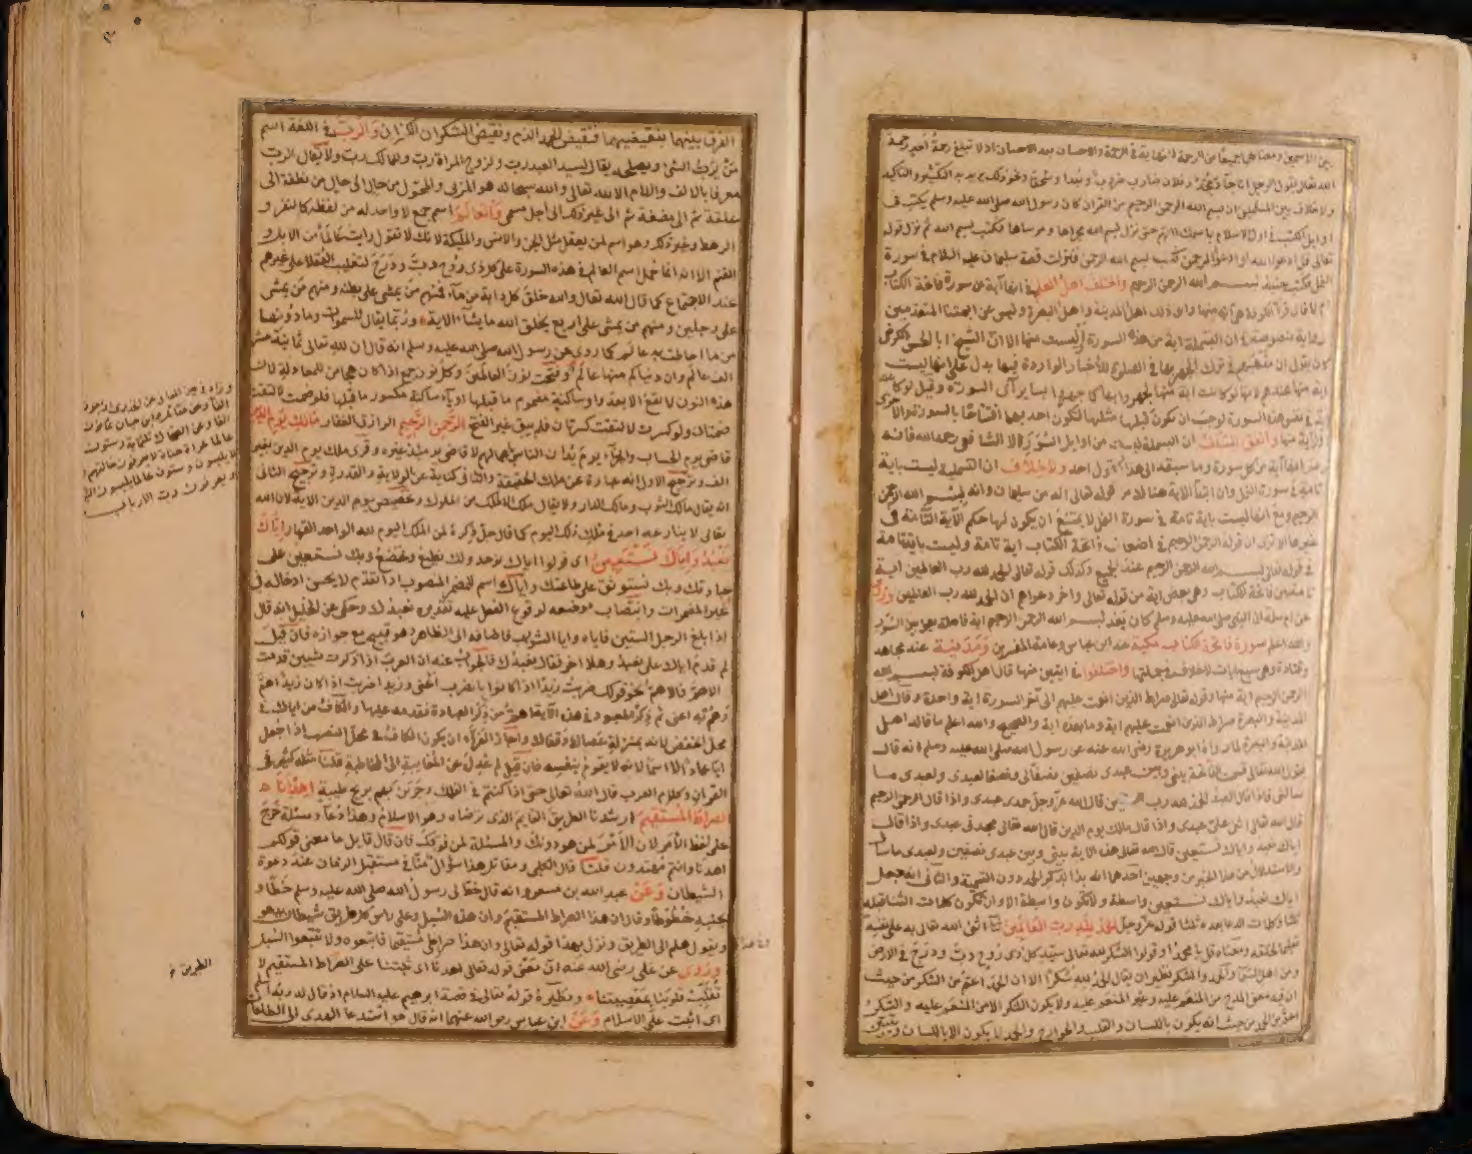 بين الاسمين ومعناهما جميعًا من الرحمة النهاية في الرحمة والاحسان بعد الاحسان اذ لا تبلغ رحمةُ احدٍ رحمة
الله تعالى
ولا خلاف بين المسلمين ان بسم الله الرحمن الرحيم من القرآن كان رسول الله صلى الله عليه وسلم يكتب في
اوايل الكتب في اول الاسلام باسمك اللهم حتى نزل بسم الله مجراها ومرساها فكتب بسم الله ثم نزل قوله
تعالى قل ادعوا الله او ادعوا الرحمن فكتب بسم الله الرحمن فنزلت قصة سليمان عليه السلام في سورة
النمل فكتب حينئذ بسم الله الرحمن الرحيم واختلف اهل العلم في انها آية من سورة فاتحة الكتاب
ام لا فان قرأ الكوفة هي آية منها وابى ذلك اهل المدينة واهل البصرة وليس عن ائمتنا المتقدمين
رواية منصوصة في ان البسملة اية من هذه السورة ليست منها الا ان الشيخ ابا الحسن الكرخي
كان يقول ان مذهبهم في ترك الجهر بها في الصلوة للأخبار الواردة فيها يدل على انها ليست
اية منها عندهم لانها لو كانت اية منها لجهر بها كما جهر بساير آي السورة
وآية منها واتفق المشايخ ان البسملة ليست من اوايل السور الا الشافعي رحمه الله فانه
وما سبقه الى هذا القول احد ولا خلاف ان التسمية ليست باية
تامة في سورة النمل وان ابتدأ الآية هنالك من قوله تعالى انه من سليمان وانه بسم الله الرحمن
الرحيم ومع انها ليست باية تامة في سورة النمل لا يمتنع ان يكون لها حكم الآية التامة في
غيرها الا ترى ان قوله الرحمن الرحيم في اضعاف فاتحة الكتاب اية تامة وليست باية تامة
في قوله تعالى بسم الله الرحمن الرحيم عند الجميع وكذلك قوله تعالى الحمد لله رب العالمين اية
تامة في فاتحة الكتاب وهي بعض اية من قوله تعالى واخر دعواهم ان الحمد لله رب العالمين وروى
عن ام سلمة ان النبي صلى الله عليه وسلم كان يعد بسم الله الرحمن الرحيم اية فاصلة بين السور
والله اعلم سورة فاتحة الكتاب مكية عند ابن عباس وعامة المفسرين ومدنية عند مجاهد
وقتادة وهي سبع ايات لا خلاف في جملتها واختلفوا في ايتين منها قال اهل الكوفة بسم الله
الرحمن الرحيم اية منها وقوله تعالى صراط الذين انعمت عليهم الى آخر السورة اية واحدة وقال اهل
المدينة والبصرة صراط الذين انعمت عليهم اية وما بعده اية والصحيح والله اعلم ما قاله اهل
المدينة والبصرة لما رواه ابو هريرة رضي الله عنه عن رسول الله صلى الله عليه وسلم انه قال
يقول الله تعالى قسمت الفاتحة بيني وبين عبدي نصفين نصفها لي ونصفها لعبدي ولعبدي ما
سألني فاذا قال العبد الحمد لله رب العالمين قال الله عز وجل حمدني عبدي واذا قال الرحمن الرحيم
قال الله تعالى اثنى علي عبدي واذا قال مالك يوم الدين قال الله تعالى مجدني عبدي واذا قال
اياك نعبد واياك نستعين قال الله تعالى هذه الآية بيني وبين عبدي نصفين ولعبدي ما سأل
والاستدلال من هذا الخبر من وجهين احدهما ان الله بدأ بذكر الحمد دون التسمية والثاني انه جعل
اياك نعبد واياك نستعين واسطة ولا تكون واسطة الا وان تكون كلمات السابقة
ككلمات الدعاء بعده ثلثا قوله عز وجل الحمد لله رب العالمين ثناء اثنى الله تعالى به على نفسه
تعليما لخلقه ومعناه قل يا محمد او قولوا الشكر لله تعالى سيد كل ذي روح دب ودرج في الارض
ومن اهل السما والحمد والشكر نظيران يقال الحمد لله شكرًا الا ان الحمد اعم من الشكر من حيث
ان فيه معنى المدح من المنعم عليه وغير المنعم عليه ولا يكون الشكر الا من المنعم عليه والشكر
اعم من الحمد من حيث انه يكون باللسان والقلب والجوارح والحمد لا يكون الا باللسان ويتبين
الفرق بينهما بنقيضيهما فنقيض الحمد الذم ونقيض الشكر ان الكفران والرب في اللغة اسم
من يرب الشئ ويصلحه يقال لسيد العبد رب ولزوج المراة رب وللمالك رب ولا يقال الرب
معرفا بالالف واللام الا لله تعالى والله سبحانه هو المربي والمحول من حال الى حال من نطفة الى
علقة ثم الى مضغة ثم الى غير ذلك الى اجل مسمى والعالم اسم جمع لا واحد له من لفظه كالنفر و
الرهط وغير ذلك وهو اسم لمن يعقل مثل الجن والانس والملئكة لانك لا تقول رايت عالما من الابل و
الغنم الا انه انما حمل اسم العالم في هذه السورة على كل ذي روح دب ودرج لتغليب العقلا على غيرهم
عند الاجتماع كما قال الله تعالى والله خلق كل دابة من ماء فمنهم من يمشي على بطنه ومنهم من يمشي
على رجلين ومنهم من يمشي على اربع يخلق الله ما يشاء الآية وربما يقال للسموات وما دونها
من ما احاطت به عالم كما روي عن رسول الله صلى الله عليه وسلم انه قال ان لله تعالى ثمانية عشر
الف عالم وان دنياكم منها عالم وفتحت نون العالمين وكل نون جمع اذا كان هجا من للمعادلة لان
هذه النون لا تقع الا بعد واو ساكنة مضموم ما قبلها او ياء ساكنة مكسور ما قبلها فلو ضمت لالتقت
ضمتان ولو كسرت لالتقت كسرتان فلم يبق غير الفتح الرحمن الرحيم الرازق الغفار مالك يوم الدين
قاضي يوم الحساب والجزاء يوم يدان الناس باعمالهم لا قاضي يومئذ غيره وقرئ ملك يوم الدين بغير
الف وترجح الاول انه عبارة عن ملك الحقيقة والثاني كناية عن الولاية والقدرة وترجيح الثاني
انه يقال مالك الثوب ومالك الدار ولا يقال ملك الا لملك من الملوك وتخصيص يوم الدين الآية لان الله
تعالى لا ينازعه احد في ملك ذلك اليوم كما قال جل ذكره لمن الملك اليوم لله الواحد القهار اياك
نعبد واياك نستعين اي قولوا اياك نوحد ولك نطيع ونخضع وبك نستعين على
عبادتك وبك نستوثق على طاعتك واياك اسم للضمير المنصوب اذا تقدم لا يحسن ادخاله في
غير المضمرات وانتصاب موضعه لوقوع الفعل عليه تقديره نعبدك وحكي عن الخليل انه قال
اذا بلغ الرجل الستين فاياه وايا الشواب فاضافه الى الظاهر وهو قبيح مع جوازه فان قيل
لم قدم اياك على نعبد وهلا اخر فقال نعبدك فالجواب عنه ان العرب اذا ذكرت شيئين قدمت
الاهم فالاهم نحو قولك ضربت زيدًا اذا كانوا بالضرب اعنى وزيدا ضربت اذا كان زيد اهم
وهم به اعنى ثم ذكر المعبود في هذه الآية اهم من ذكر العبادة فقدمه عليها والكاف من اياك في
محل الخفض لانه بمنزلة عصاك وقفاك واجاز الفراء ان يكون الكاف في محل النصب اذا جعل
ايا عمادًا لا اسما لانه لا يقوم بنفسه فان قيل لم عدل عن المغايبة الى المخاطبة قلنا مثله كثير في
القرآن وكلام العرب قال الله تعالى حتى اذا كنتم في الفلك وجرين بهم بريح طيبة اهدنا
الصراط المستقيم ارشدنا الطريق القايم الذي ترضاه وهو الاسلام وهذا دعاء ومسئلة خرج
على لفظ الأمر لان الأمر لمن هو دونك والمسئلة لمن فوقك فان قال قايل ما معنى قولكم
اهدنا وانتم مهتدون قلنا قال الكلبي ومقاتل هذا سؤال منا في مستقبل الزمان عند دعوة
الشيطان وعن عبد الله بن مسعود انه قال خط لي رسول الله صلى الله عليه وسلم خطًا و
بجنبه خطوطا وقال ان هذا الصراط المستقيم وان هذه السبل وعلى راس كل طريق شيطان يدعو
ويقول هلم الى الطريق ونزل بهذا قوله تعالى وان هذا صراطي مستقيما فاتبعوه ولا تتبعوا السبل
وروى عن علي رضي الله عنه ان معنى قوله تعالى اهدنا اي ثبتنا على الصراط المستقيم لا
تقلب قلوبنا بمعصيتنا ونظيره قوله تعالى في قصة ابرهيم عليه السلام اذ قال له ربه اسلم
اي اثبت على الاسلام وعن ابن عباس رضي الله عنهما انه قال هو استدعا الهدى الى الطاعات
الطريق